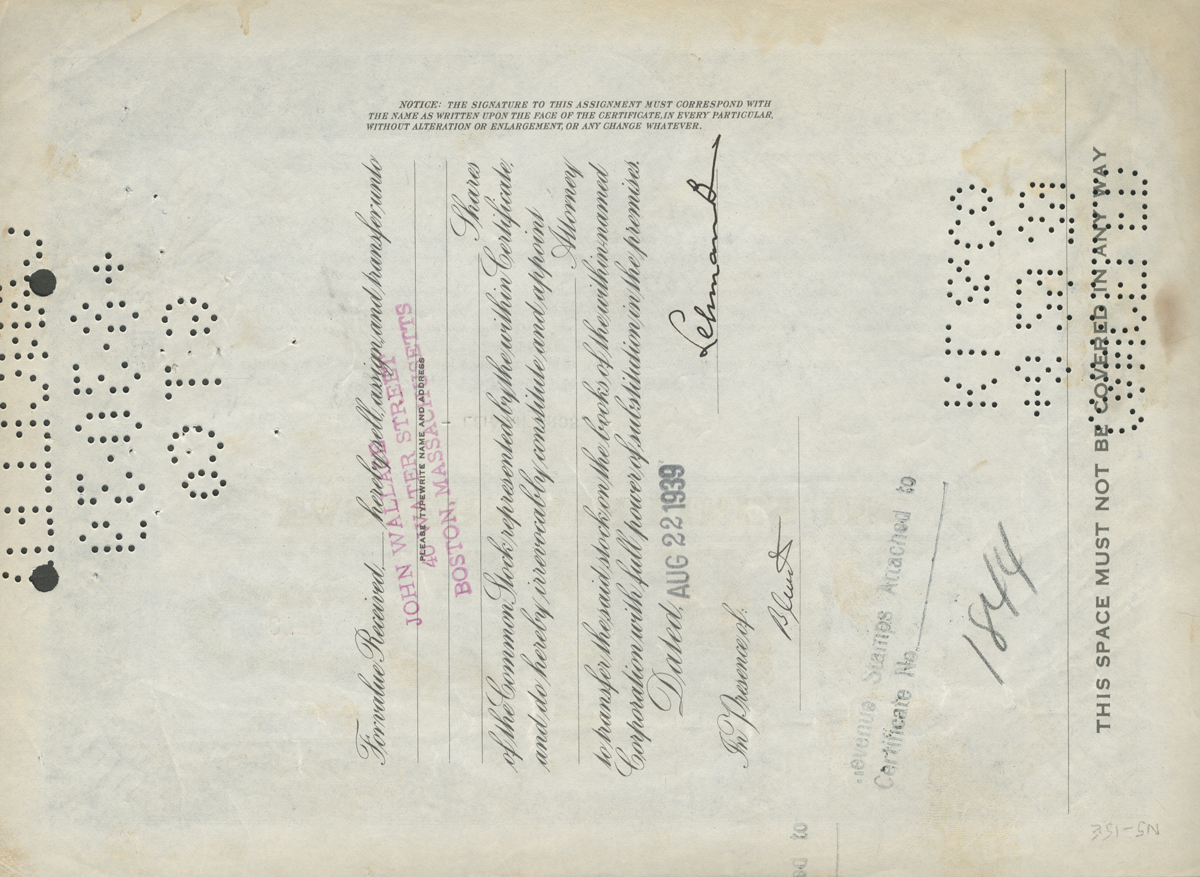 NOTICE: THE SIGNATURE TO THIS ASSIGNMENT MUST CORRESPOND WITH
THE NAME AS WRITTEN UPON THE FACE OF THE CERTIFICATE, IN EVERY PARTICULAR,
WITHOUT ALTERATION OR ENLARGEMENT, OR ANY CHANGE WHATEVER.
For value Received, hereby sell, assign, and transfer, unto
JOHN WALLACE
40 WATER STREET
PLEASE TYPEWRITE NAME AND ADDRESS
BOSTON, MASSACHUSETTS
Shares
of the Common Stock represented by the within Certificate,
and do hereby irrevocably constitute and appoint
Attorney
to transfer the said stock on the books of the within-named
Corporation with full power of substitution in the premises.
Dated, AUG 22 1939
Lehman B
In Presence of:
Revenue Stamps Attached to
Certificate No.
1844
THIS SPACE MUST NOT BE COVERED IN ANY WAY
ed to